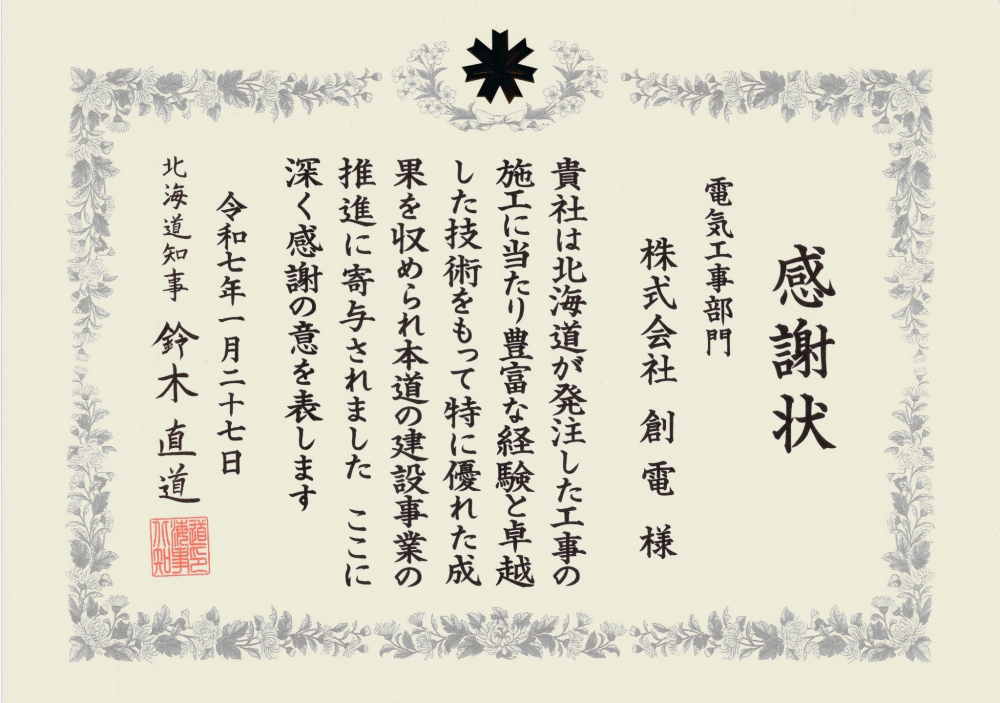 感謝状
電気工事部門
株式会社 創電 様
貴社は北海道が発注した工事の
施工に当たり豊富な経験と卓越
した技術をもって特に優れた成
果を収められ本道の建設事業の
推進に寄与されました ここに
深く感謝の意を表します
令和七年一月二十七日
北海道知事 鈴木直道